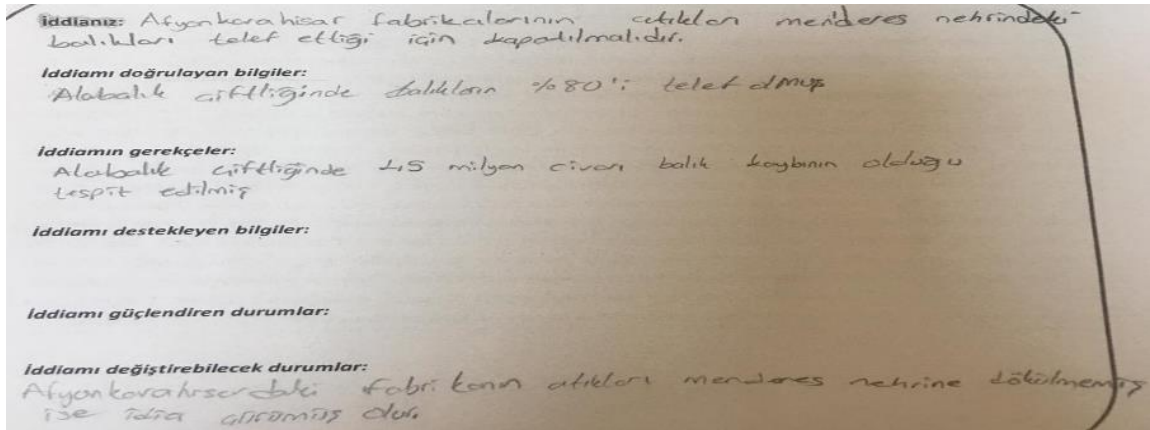 İddianız: Afyonkarahisar fabrikalarının atıkları menderes nehrindeki
balıkları telef ettiği için kapatılmalıdır.
İddiamı doğrulayan bilgiler:
Alabalık çiftliğinde balıkların %80'i telef olmuş
İddiamın gerekçeler:
Alabalık çiftliğinde 1,5 milyon civarı balık kaybının olduğu
tespit edilmiş
İddiamı destekleyen bilgiler:
İddiamı güçlendiren durumlar:
İddiamı değiştirebilecek durumlar:
Afyonkarahisardaki fabrikanın atıkları menderes nehrine dökülmemiş
ise idia çürümüş olur.